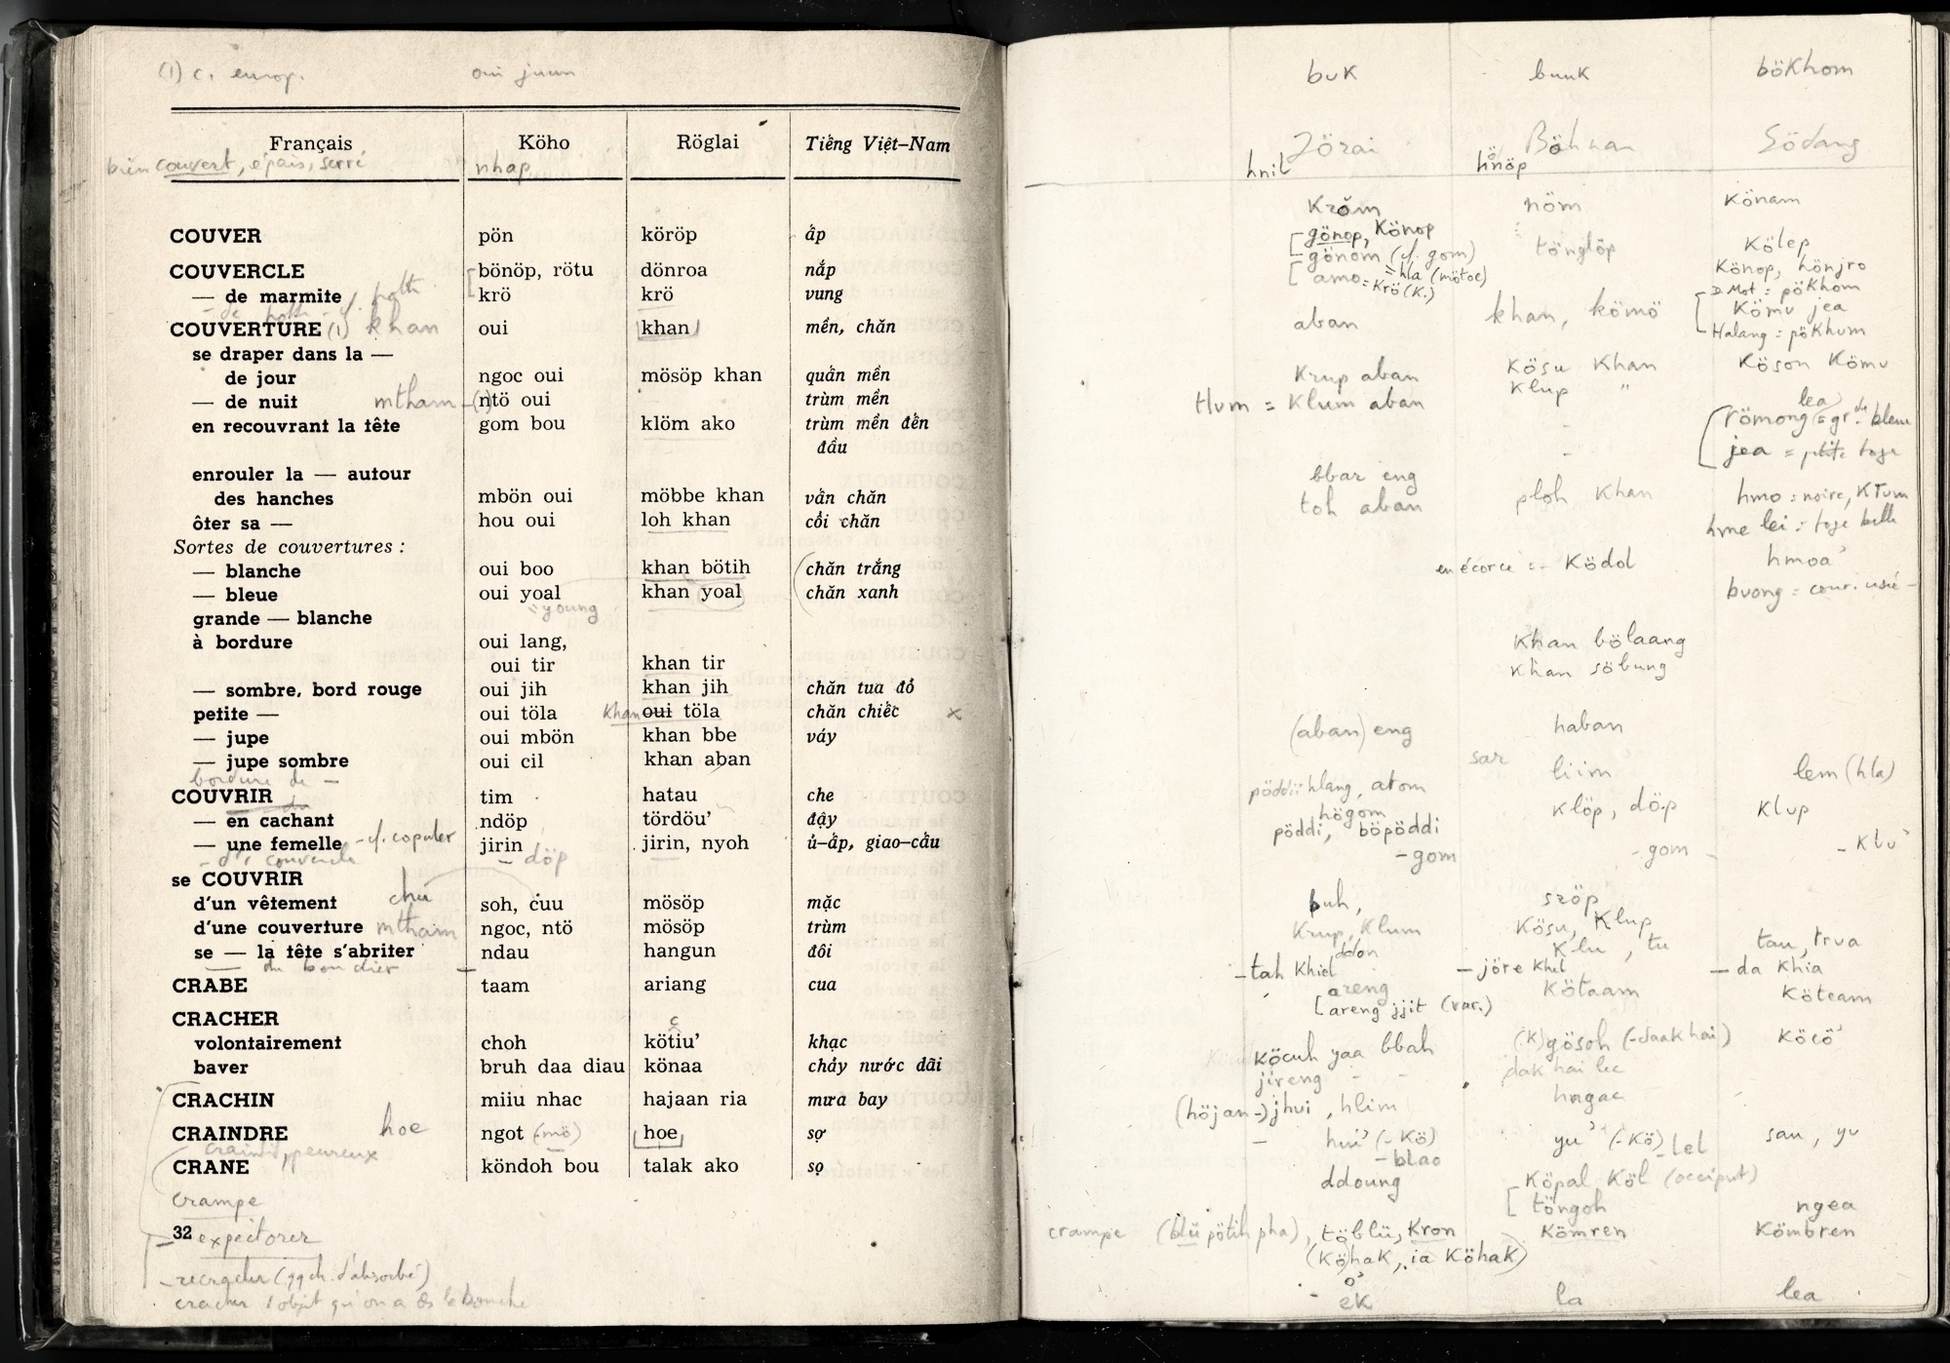 (1) c. europ. oui juun
Français Köho Röglai Tiếng Việt-Nam
bien couvert, épais, serré nhap
COUVER pön köröp ấp
COUVERCLE bönöp, rötu dönroa nắp
— de marmite krö krö vung
COUVERTURE (1) khan oui khan mền, chăn
se draper dans la —
de jour ngoc oui mösöp khan quấn mền
— de nuit mtham (1) ntö oui trùm mền
en recouvrant la tête gom bou klöm ako trùm mền đến
đầu
enrouler la — autour
des hanches mbön oui möbbe khan vấn chăn
ôter sa — hou oui loh khan cổi chăn
Sortes de couvertures :
— blanche oui boo khan bötih chăn trắng
— bleue oui yoal khan yoal chăn xanh
young
grande — blanche
à bordure oui lang,
oui tir khan tir
— sombre, bord rouge oui jih khan jih chăn tua đỏ
petite — oui töla khan oui töla chăn chiếc x
— jupe oui mbön khan bbe váy
— jupe sombre oui cil khan aban
bordure de —
COUVRIR tim hatau che
— en cachant ndöp tördöu' đậy
— une femelle - cf. copuler jirin jirin, nyoh ủ-ấp, giao-cấu
- d'1 couvercle - döp
se COUVRIR
d'un vêtement chu soh, cuu mösöp mặc
d'une couverture mtham ngoc, ntö mösöp trùm
se — la tête s'abriter ndau hangun đôi
— du bouclier —
CRABE taam ariang cua
CRACHER c
volontairement choh kötiu' khạc
baver bruh daa diau könaa chảy nước dãi
CRACHIN miiu nhac hajaan ria mưa bay
CRAINDRE hoe ngot (-mö) hoe sợ
craintif, peureux
CRANE köndoh bou talak ako sọ
crampe
32
expectorer
- recracher (qq ch. d'absorbé)
cracher 1 objet qu'on a ds la bouche
buk buuk bökhom
Jörai Böhnan Södang
hnil hnöp
Kröm nöm Könam
gönop, Könop tönglöp Kölep
gönom (cf. gom) Könop, hönjro
amo = hla (mötoc) D. Mot = pökhom
= Krö (K.)
aban khan, kömö Kömu jea
Halang = pökhum
Krup aban Kösu Khan Köson Kömu
Hum = Klum aban Klup " lea
römong = gr. de bleue
jea = petite toge
bbar eng
toh aban ploh Khan hmo = noire, Ktum
hme lei = toge belle
en écorce = Ködol hmoa'
buong = cour. usé -
Khan bölaang
Khan söbung
(aban) eng haban
sar liim lem (hla)
pöddii hlang, atom klöp, döp Klup
högom
pöddi, böpöddi
- gom - gom - Klu'
buh, szöp
Krup, Klum Kösu, Klup
ddon Klu, tu tau, trua
- tah Khiel — jöre Khel — da Khia
areng Kötaam Köteam
areng jjit (var.)
Köcuh yaa bbah (K)gösoh (-daak hai) Köcö'
jireng - - dak hai lec
(höjan -) jhui, hlim hngac
— hui' (-Kö) yu' (-Kö) - lel sau, yu
- blao
ddoung Köpal Köl (occiput)
töngoh ngea
crampe (blü pötih pha), töblü, Kron Kömren Kömbren
(Köhak, ia Köhak)
ök la lea